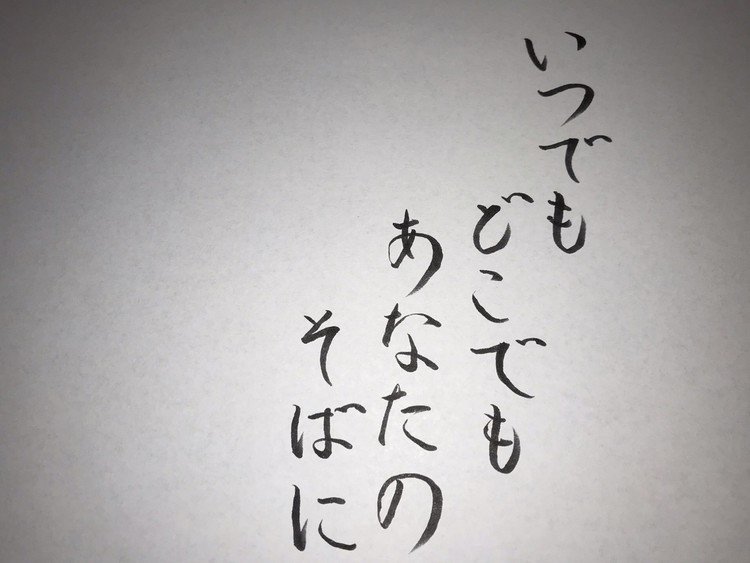 いつでも
どこでも
あなたの
そばに